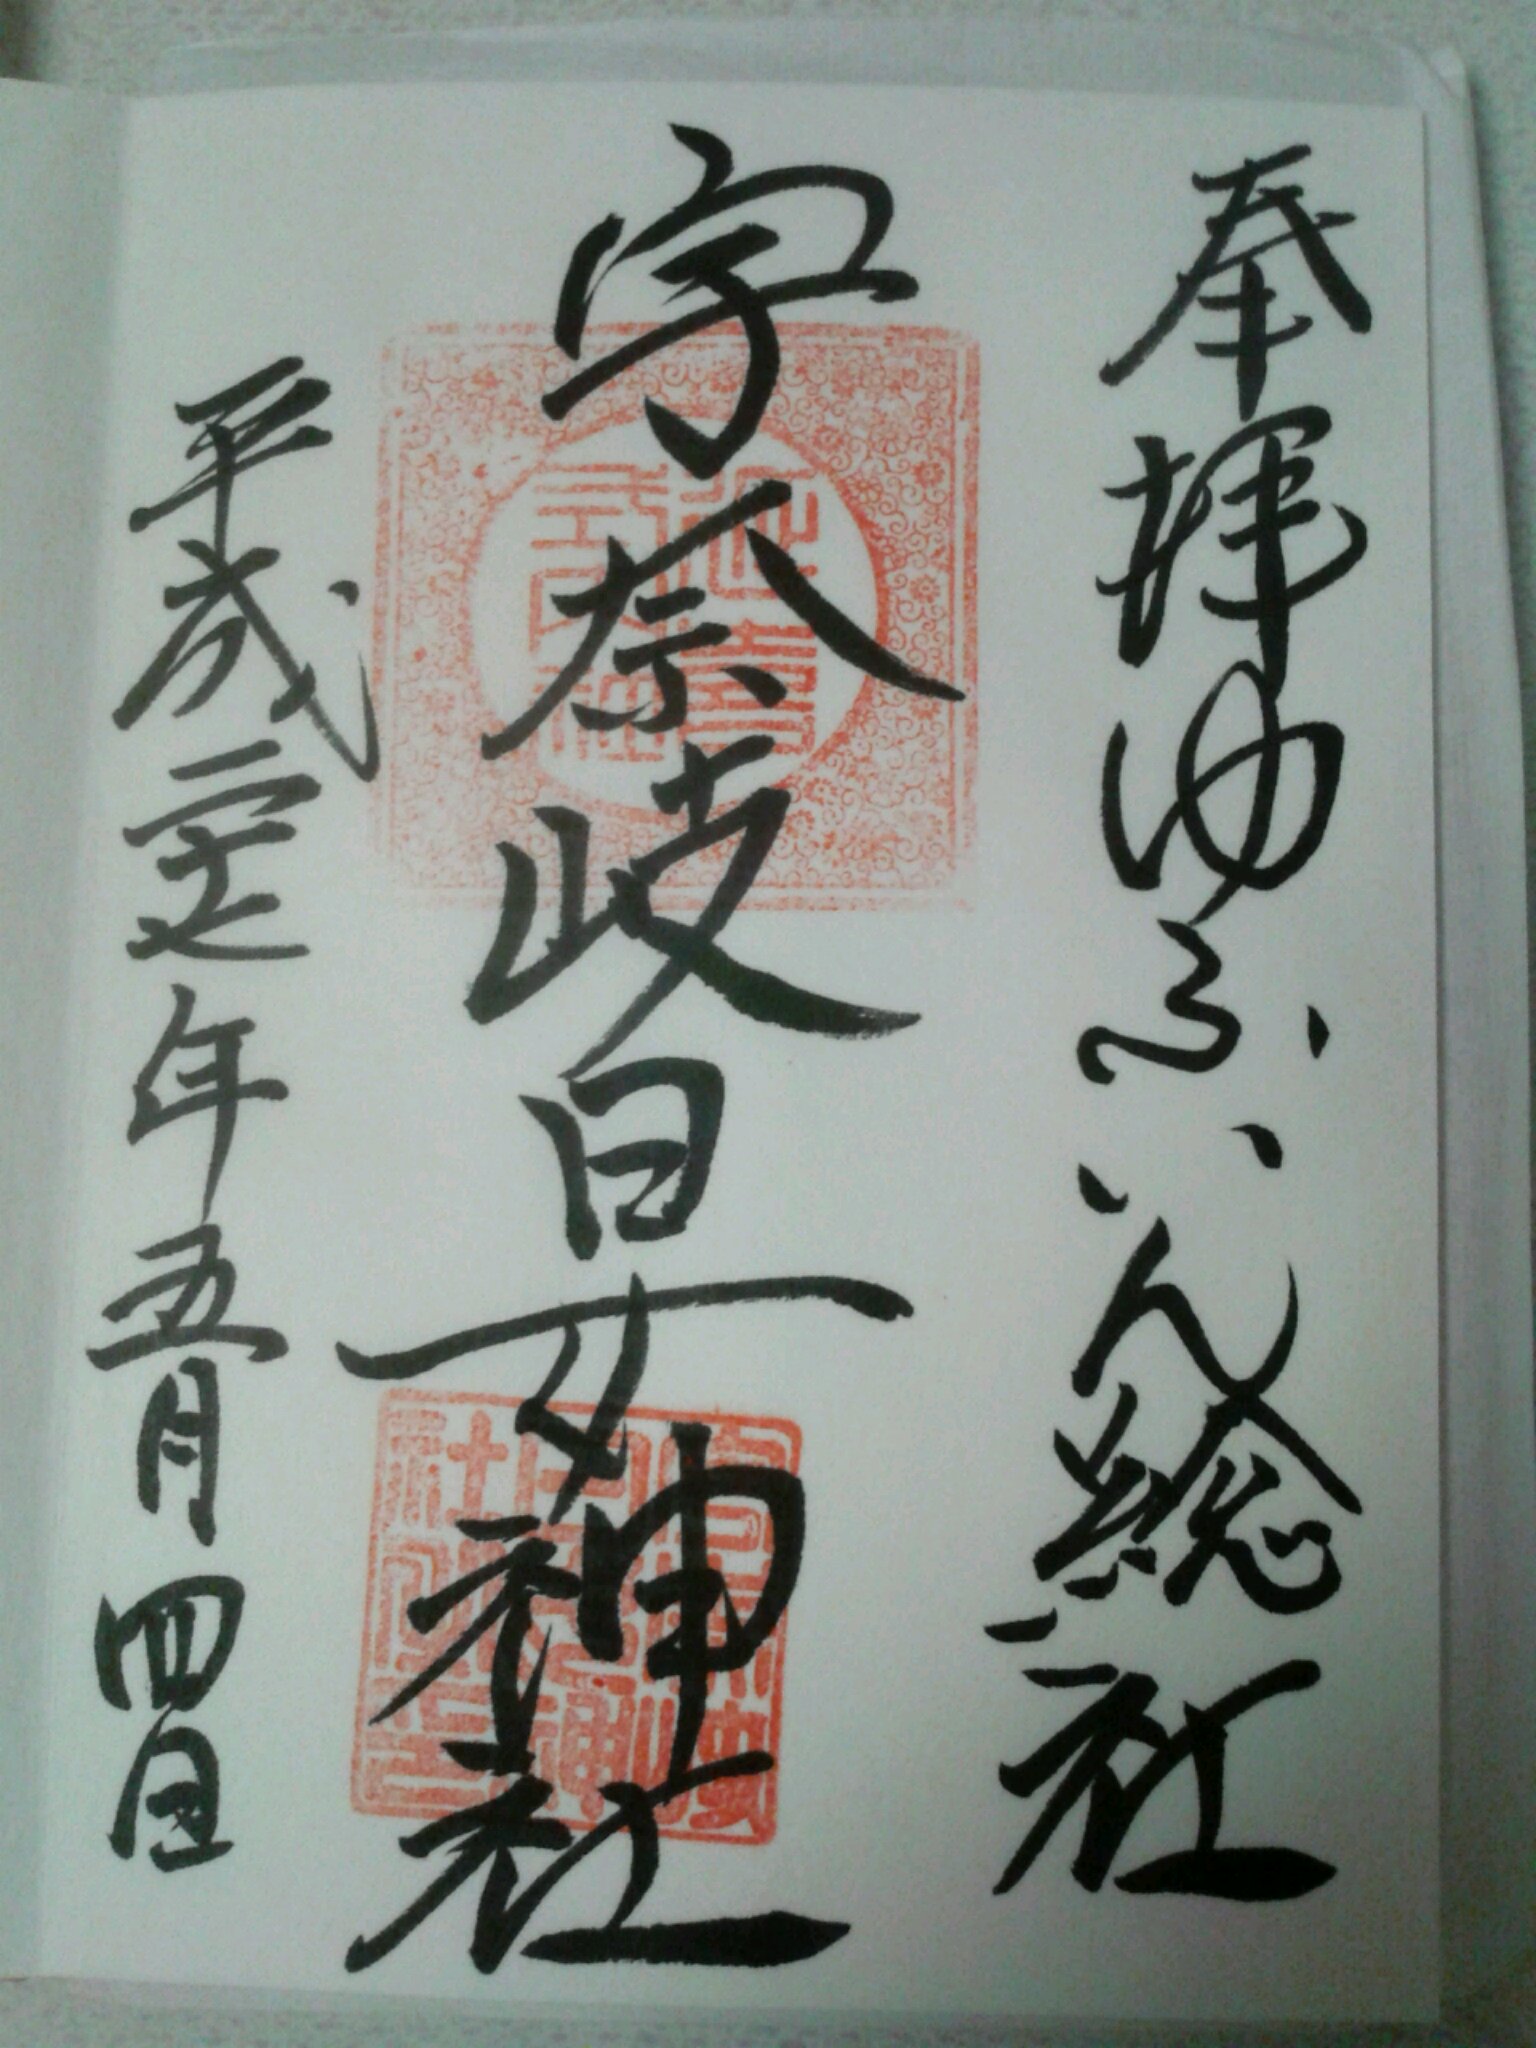 奉拝 ゆふいん総社
宇奈岐日女神社
延喜
式内社
平成二十七年五月四日